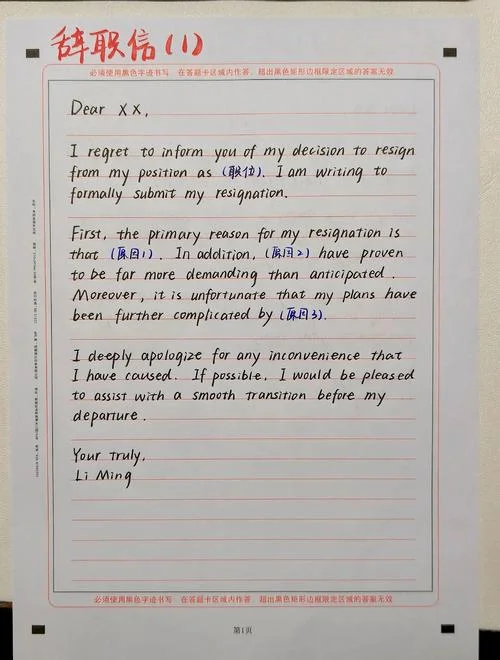 辞职信(1)
必须使用黑色字迹书写 在答题卡区域内作答,超出黑色矩形边框限定区域的答案无效
Dear ××,
I regret to inform you of my decision to resign
from my position as (职位). I am writing to
formally submit my resignation.
First, the primary reason for my resignation is
that (原因1). In addition, (原因2) have proven
to be far more demanding than anticipated.
Moreover, it is unfortunate that my plans have
been further complicated by (原因3).
I deeply apologize for any inconvenience that
I have caused. If possible, I would be pleased
to assist with a smooth transition before my
departure.
Your truly,
Li Ming
必须使用黑色字迹书写 在答题卡区域内作答,超出黑色矩形边框限定区域的答案无效
第1页